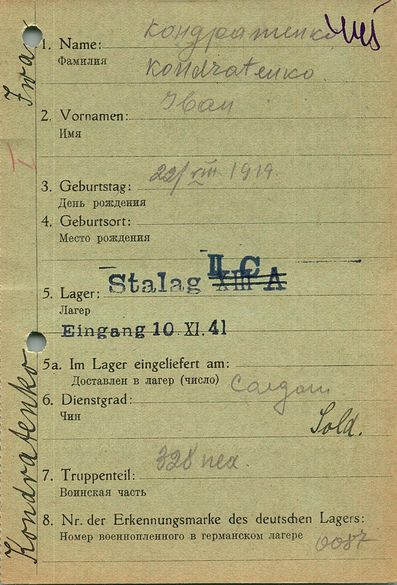 Кондратенко
1. Name:
Фамилия
Kondratenko
Iван
2. Vornamen:
Имя
22/VIII 1919.
3. Geburtstag:
День рождения
4. Geburtsort:
Место рождения
II C
5. Lager: Stalag XIII A
Лагер
Eingang 10 XI. 41
5a. Im Lager eingeliefert am:
Доставлен в лагер (число)
6. Dienstgrad:
Чин
Sold.
328
7. Truppenteil:
Воинская часть
8. Nr. der Erkennungsmarke des deutschen Lagers:
Номер военнопленного в германском лагере
Kondratenko Iwan